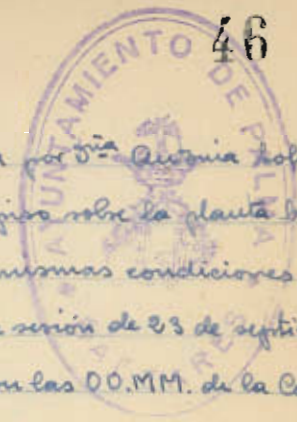 46
AYUNTAMIENTO DE PALMA
BALEARES
por Dña
piso sobre la planta
mismas condiciones
sesión de 23 de septi
las OO.MM. de la